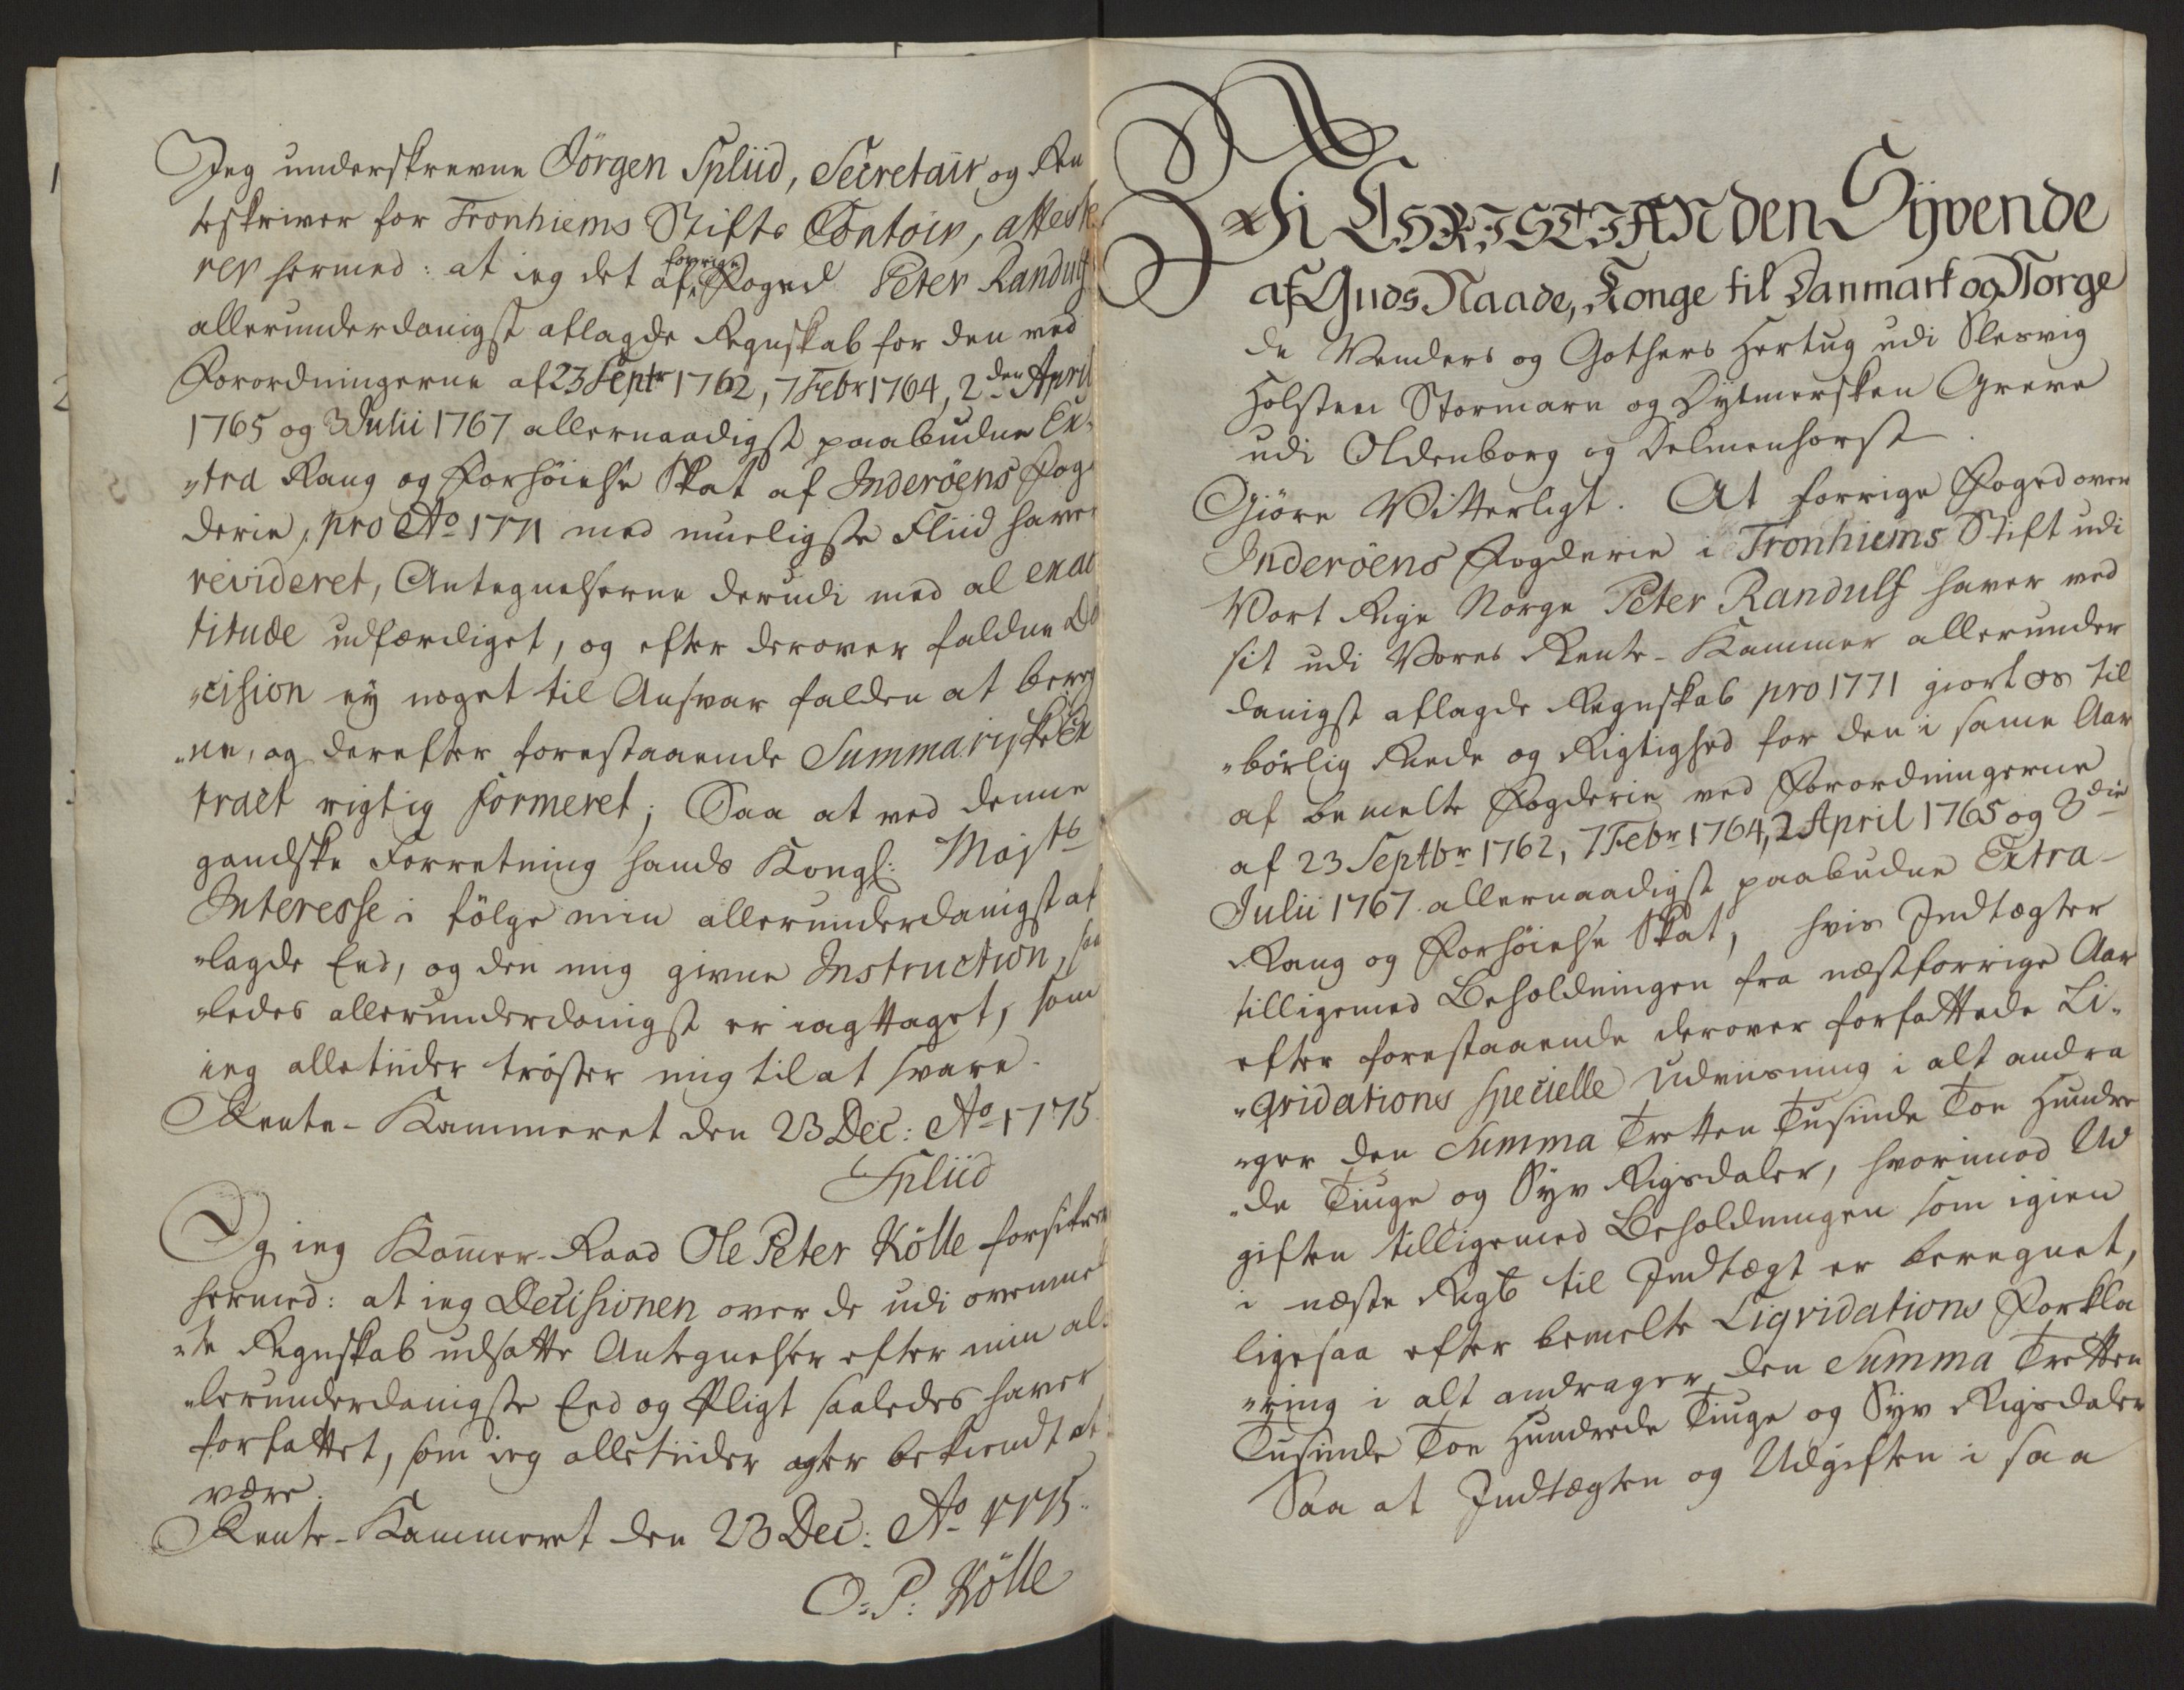 Jeg underskrevne Jörgen Spliid, Secretair og Ren
teskriver for Tronhiems Stifts Contoir, atteste
rer hermed: at ieg det af forrige Foged Peter Randulf
allerunderdanigst aflagde Regnskab for den ved
Forordningerne af 23 Septr 1762, 7 Febr 1764, 2den April
1765 og 3 Julii 1767 allernaadigst paabudne Ex„
„tra Rang og Forhöielse Skat af Inderöens Fog
derie, pro Ao 1771 med mueligste Fliid haver
revideret, Antegnelserne derudi med al exac
titude udfærdiget, og efter derover faldne De
„cision ey noget til Ansvar falden at bereg
„ne, og derefter forestaaende Summariske Ex
tract rigtig formeret; Saa at ved denne
gandske Forretning Hands Kongl: Majts
Interesse i fölge min allerunderdanigst af
„lagde Eed, og den mig givne Instruction, saa
„ledes allerunderdanigst er iagttaget, som
ieg alletiider tröster mig til at svare.
Rente-Kammeret den 23 Dec: Ao 1775.
Spliid
Og ieg Kammer-Raad Ole Peter Kölle forsikrer
hermed: at ieg Decisionen over de udi ovenmel
„te Regnskab udsatte Antegnelser efter min al„
„lerunderdanigste Eed og Pligt saaledes haver
forfattet, som ieg alletiider agter bekiendt at
være.
Rente-Kammeret den 23 Dec: Ao 1775.
O: P: Kölle
Vi CHRISTIAN den Syvende
af Guds Naade, Konge til Danmark og Norge
de Venders og Gothers Hertug udi Slesvig
Holsten Stormarn og Dytmersken Greve
udi Oldenborg og Delmenhorst.
Giöre Vitterligt. At forrige Foged over
Inderöens Fogderie i Tronhiems Stift udi
Vort Rige Norge Peter Randulf haver ved
sit udi Vores Rente-Kammer allerunder
danigst aflagde Regnskab pro 1771 giort os til
„börlig Rede og Rigtighed for den i samme Aar
af bemelte Fogderie ved Forordningerne
af 23 Septbr 1762, 7 Febr 1764, 2 April 1765 og 3die
Julii 1767 allernaadigst paabudne Extra-
Rang og Forhöielse Skat, hvis Indtægter
tilligemed Beholdningen fra næstforrige Aar
efter forestaaende derover forfattede Li„
„qvidations specielle Udviisning i alt andra
„ger den Summa Tretten Tusinde Toe Hundre
„de Tiuge og Syv Rigsdaler, hvorimod Ud
giften tilligemed Beholdningen som igien
i næste Regsb til Indtægt er beregnet,
ligesaa efter bemelte Liqvidations Forkla
„ring i alt andrager den Summa Tretten
Tusinde Toe Hundrede Tiuge og Syv Rigsdaler
Saa at Indtægten og Udgiften i saa